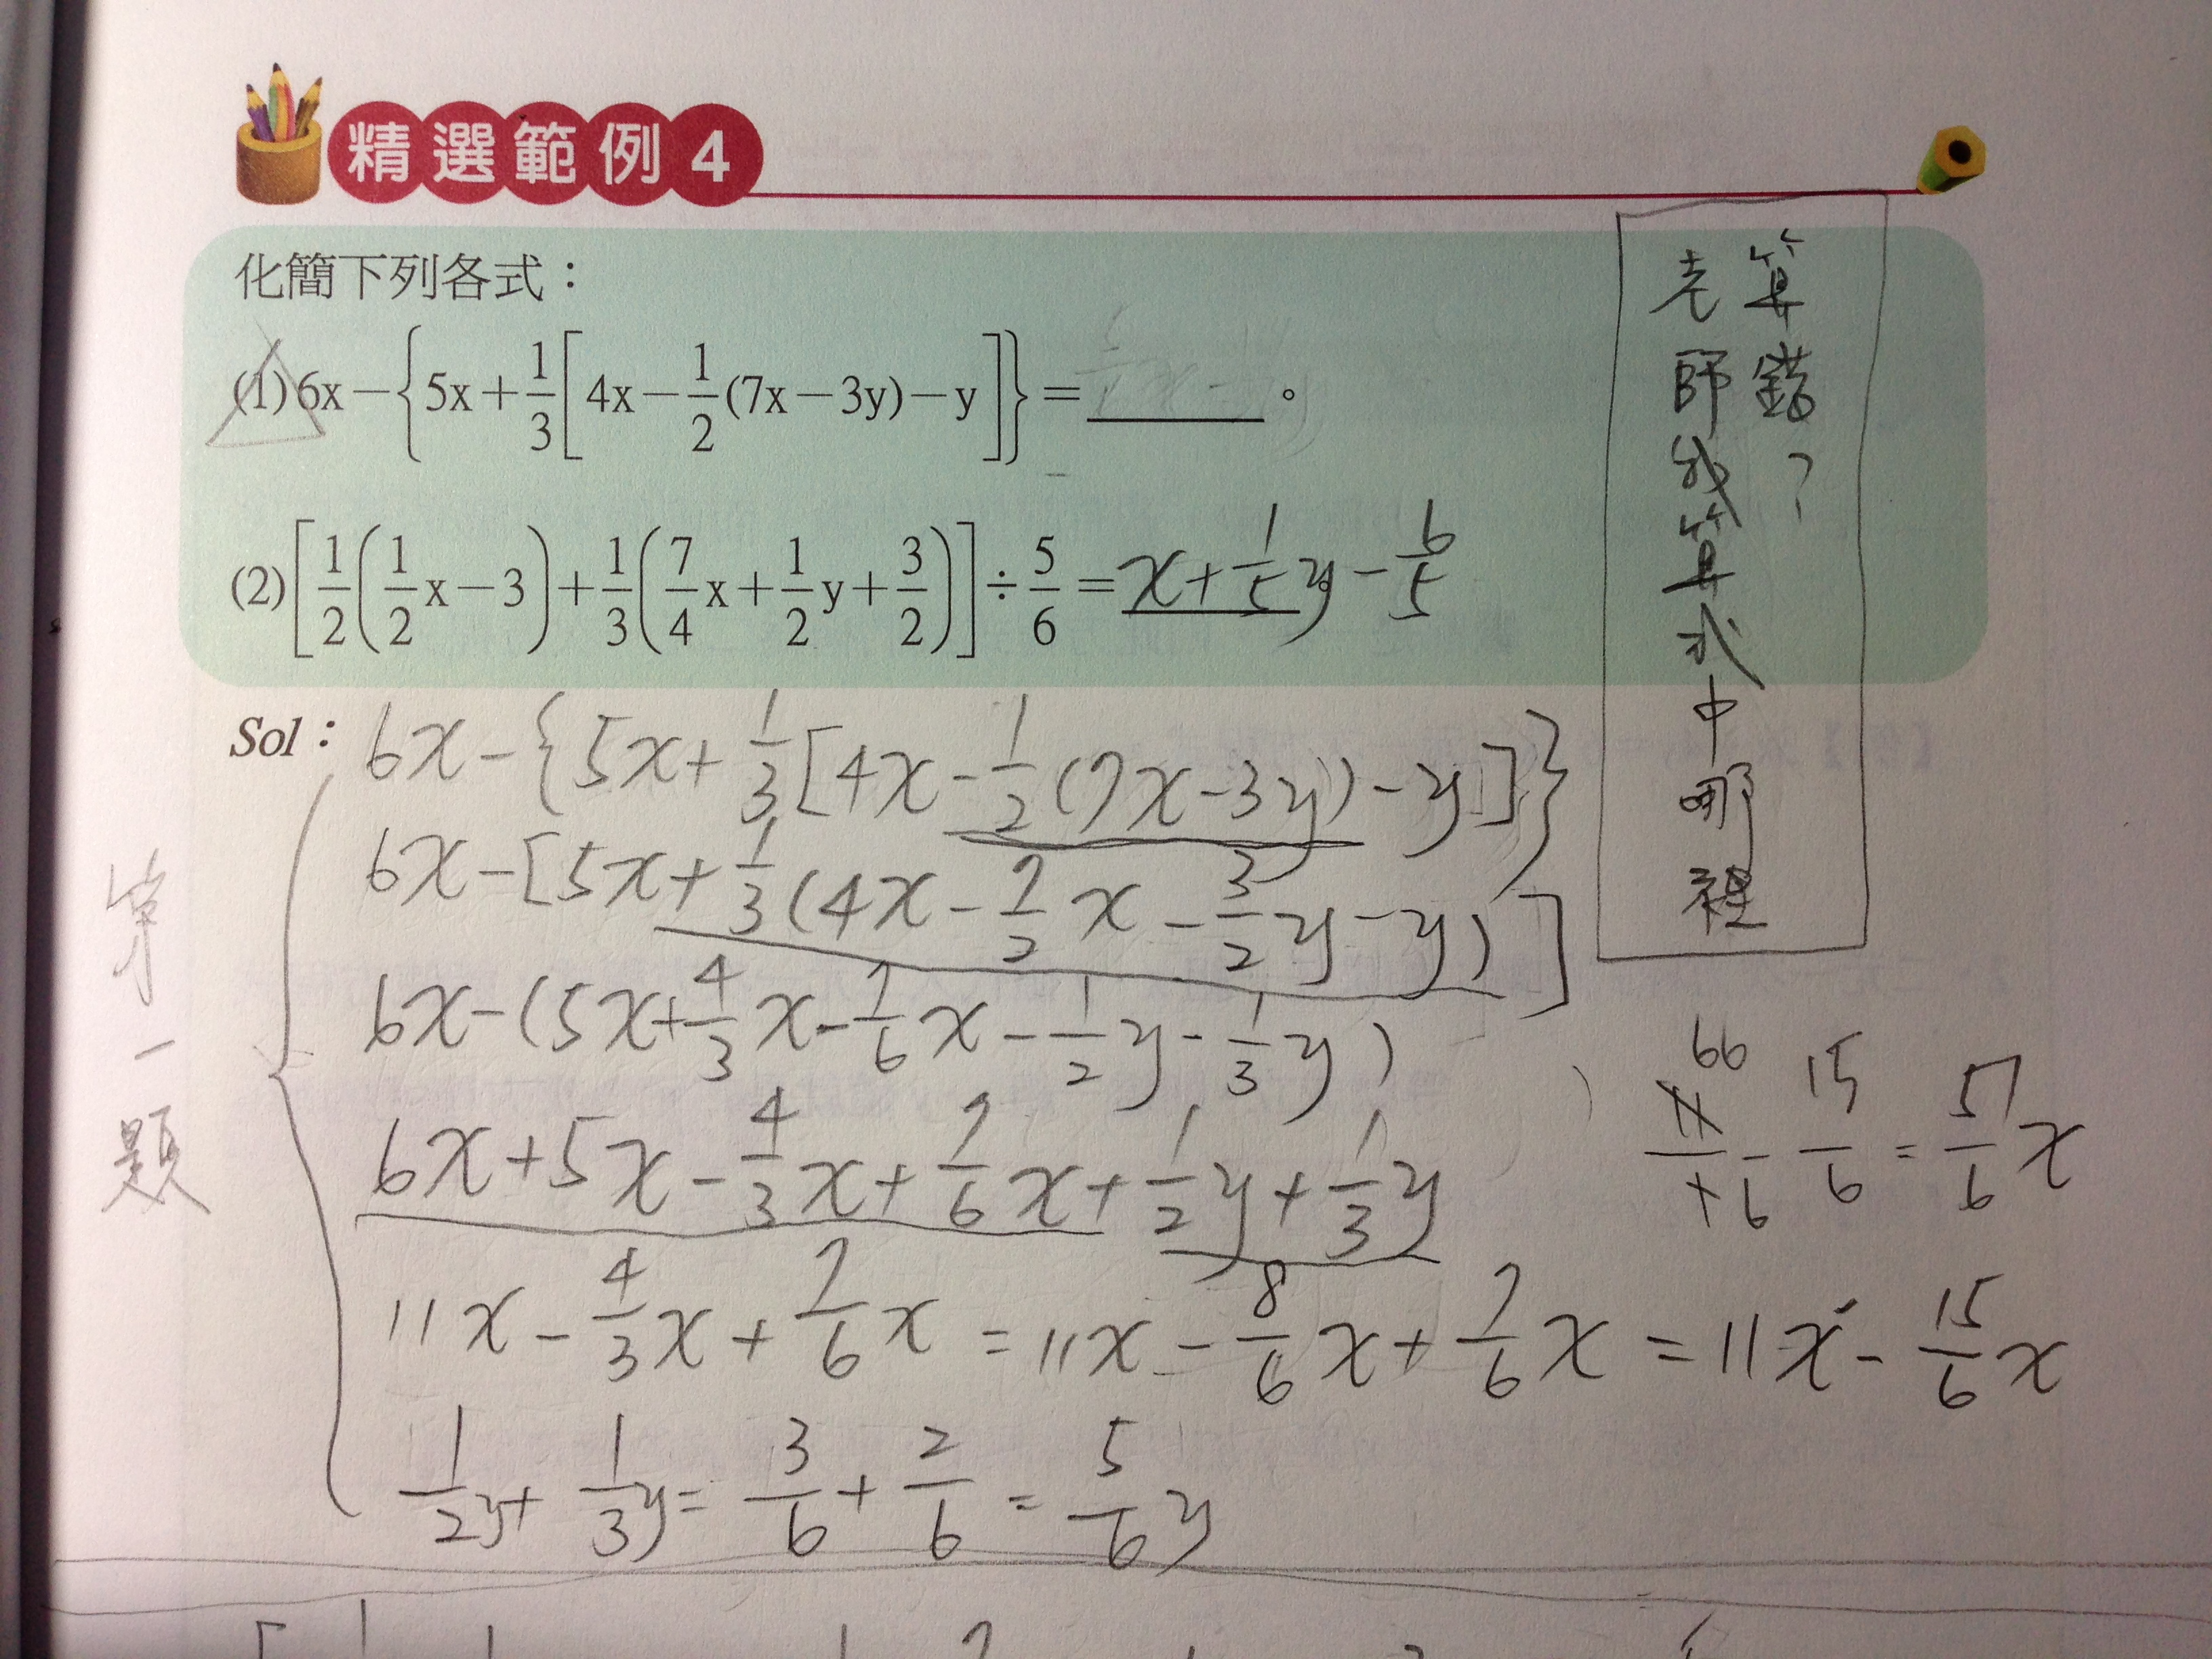 精選範例 4
化簡下列各式：
(1) 6x－{5x＋1/3[4x－1/2(7x－3y)－y]}＝______。
(2) [1/2(1/2x－3)＋1/3(7/4x＋1/2y＋3/2)]÷5/6＝x+1/5y-6/5
老師我算式中哪裡
算錯？
Sol：
第一題
6x-{5x+1/3[4x-1/2(7x-3y)-y]}
6x-[5x+1/3(4x-7/2x-3/2y-y)]
6x-(5x+4/3x-7/6x-1/2y-1/3y)
6x+5x-4/3x+7/6x+1/2y+1/3y
11x-4/3x+7/6x=11x-8/6x+7/6x=11x-15/6x
66/6-15/6=51/6x
1/2y+1/3y=3/6+2/6=5/6y